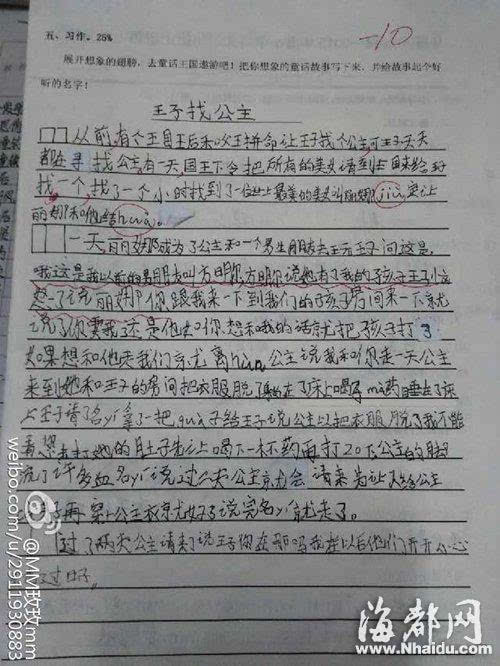 五、习作。25%
-10
展开想象的翅膀，去童话王国遨游吧！把你想象的童话故事写下来，并给故事起个好
听的名字！
王子找公主
从前,有个王国王后和王拼命让王子找个公主可王子天天
都在寻找公主,有一天,国王下令把所有的美女请到来给
找一个,找了一个小时找到了一位世上最美的美女叫丽娜jiu让
丽娜和他结hun。
一天丽娜成为了公主和一个男生朋友去玩王子问这是,
哦这是我以前的男朋友叫方明,方明说她有了我的孩子王子
了说丽娜你,跟我来一下到我们的孩子房间来一下就
说了你要我这是他和你,想和我的话就把孩子打了
如果想和他我们就离hun公主说我和你走一天公主
来到她和王子的房间把衣服脱了在床上喝了药睡在了床
上王子请名yi拿了一把子给王子说公主以把衣服脱了我不能
看去打她的肚子先让喝下一杯药再打20下公主的脚
流了许多血名yi说过一天公主就会请来让人给公主
再穿上公主衣就好了说完名yi就走了。
过了两天公主请来了说王子你在那吗我在以后他们开开心心
过日子。
weibo.com/u/2911930883
海都网
www.Nhaidu.com